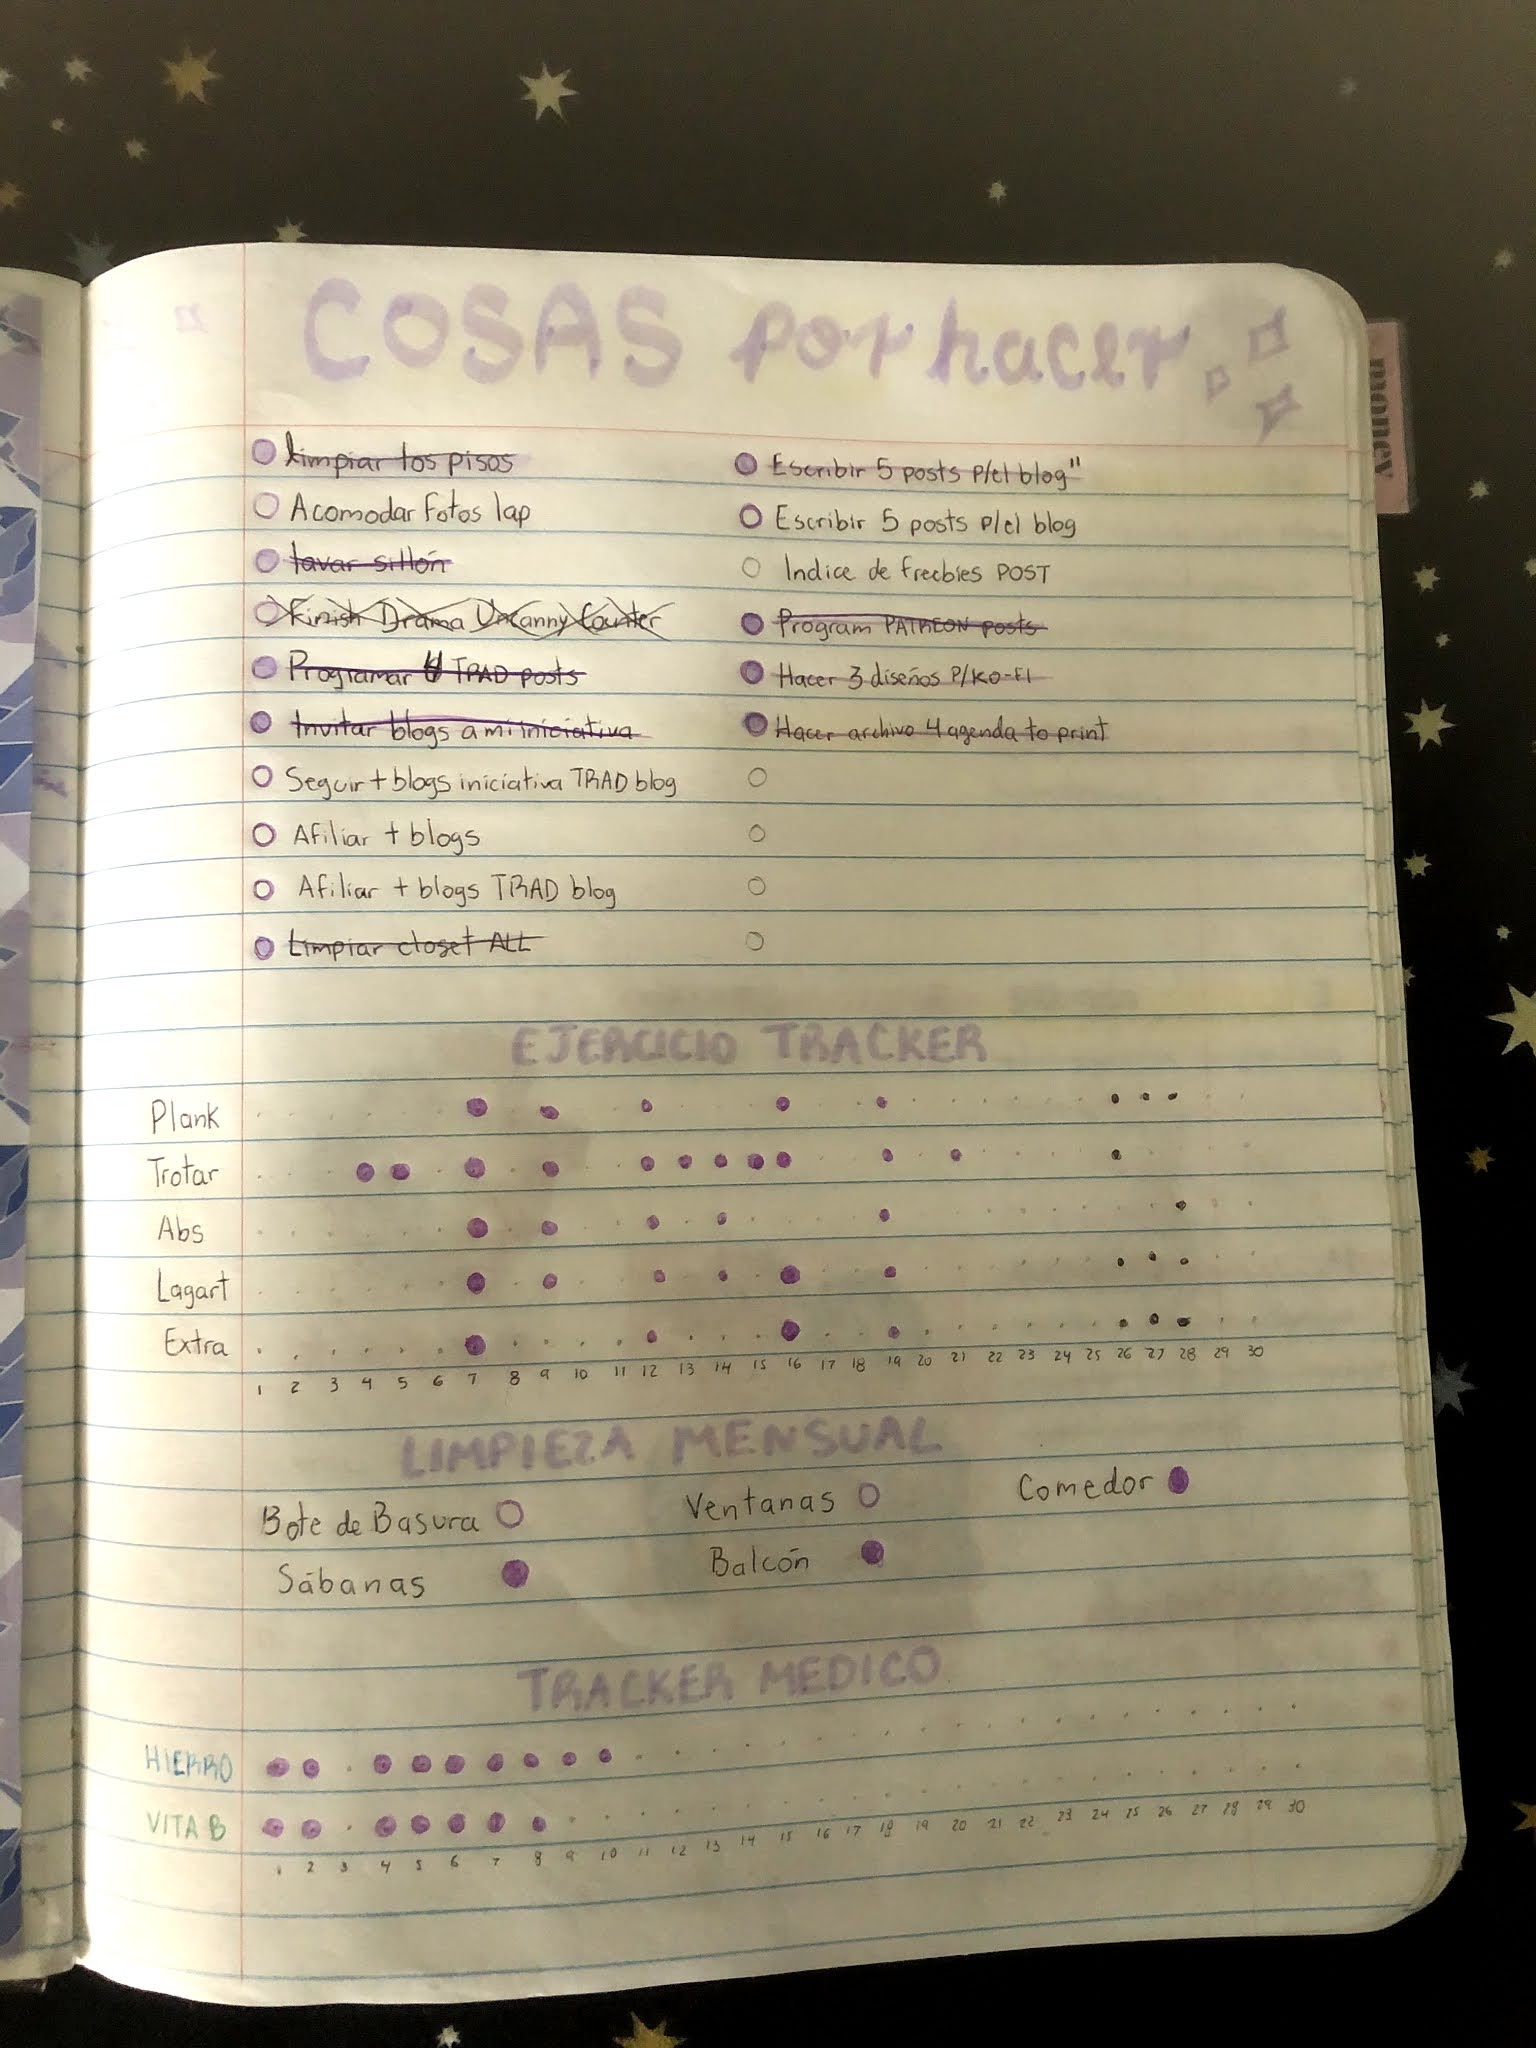 COSAS por hacer
money
Limpiar los pisos
Acomodar fotos lap
Lavar sillón
Finish Drama Uncanny Counter
Programar 4 TRAD posts
Invitar blogs a mi iniciativa
Seguir + blogs iniciativa TRAD blog
Afiliar + blogs
Afiliar + blogs TRAD blog
Limpiar closet ALL
Escribir 5 posts p/el blog"
Escribir 5 posts p/el blog
Indice de freebies POST
Program PATREON posts
Hacer 3 diseños P/KO-FI
Hacer archivo 4 agenda to print
EJERCICIO TRACKER
Plank
Trotar
Abs
Lagart
Extra
1 2 3 4 5 6 7 8 9 10 11 12 13 14 15 16 17 18 19 20 21 22 23 24 25 26 27 28 29 30
LIMPIEZA MENSUAL
Bote de Basura Ventanas Comedor
Sábanas Balcón
TRACKER MEDICO
HIERRO
VITA B
1 2 3 4 5 6 7 8 9 10 11 12 13 14 15 16 17 18 19 20 21 22 23 24 25 26 27 28 29 30